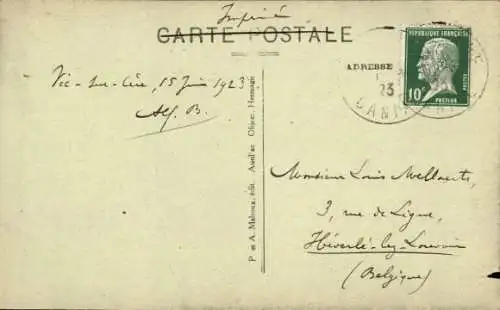 Imprimé
CARTE POSTALE
Vic-sur-Cère, 15 Juin 1923
Alf. B.
ADRESSE
23
CANTAL
REPUBLIQUE FRANÇAISE
10c
POSTES
PASTEUR
P. et A. Malroux, édit. Aurillac
Monsieur Louis
3, rue de Ligne,
Héverlé-lez-Louvain
(Belgique)